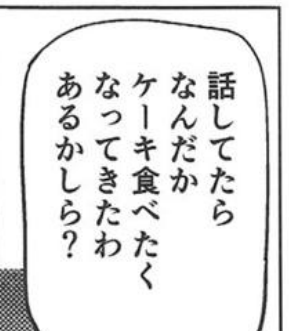 話してたら
なんだか
ケーキ食べたく
なってきたわ
あるかしら？